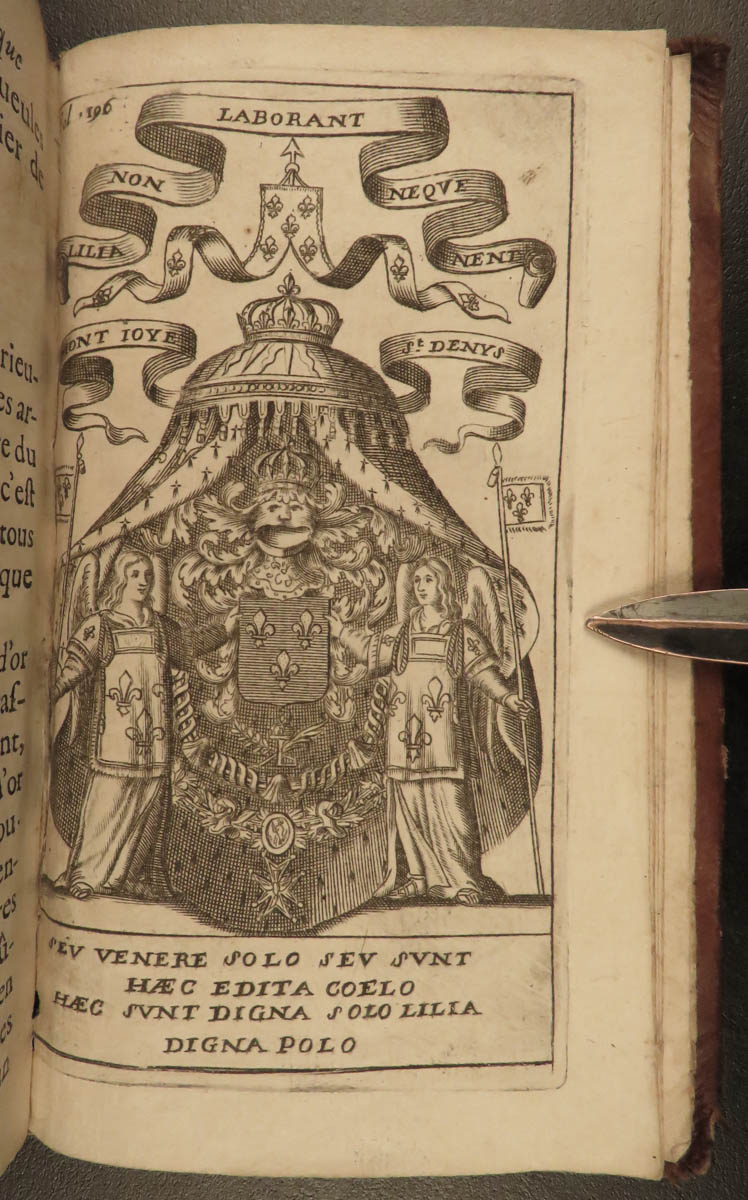 que
ueules
ier de
rieu-
es ar-
re du
c'est
tous
que
d'or
af-
nt,
d'or
ou-
en-
res
û-
en
es
on
196
LILIA
NON
LABORANT
NEQVE
NENT
MONT IOYE
St DENYS
SEV VENERE SOLO SEV SVNT
HÆC EDITA COELO
HÆC SVNT DIGNA SOLO LILIA
DIGNA POLO